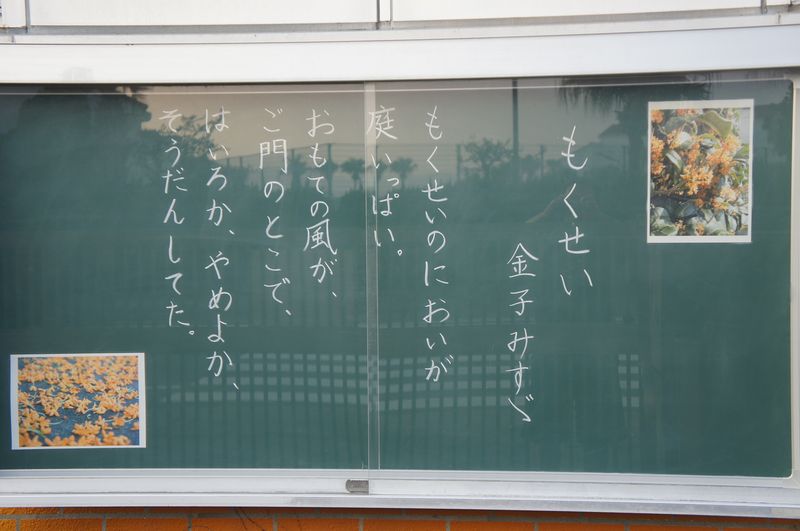 もくせい
金子みすゞ
もくせいのにおいが
庭いっぱい。
おもての風が、
ご門のとこで、
はいろか、やめよか、
そうだんしてた。